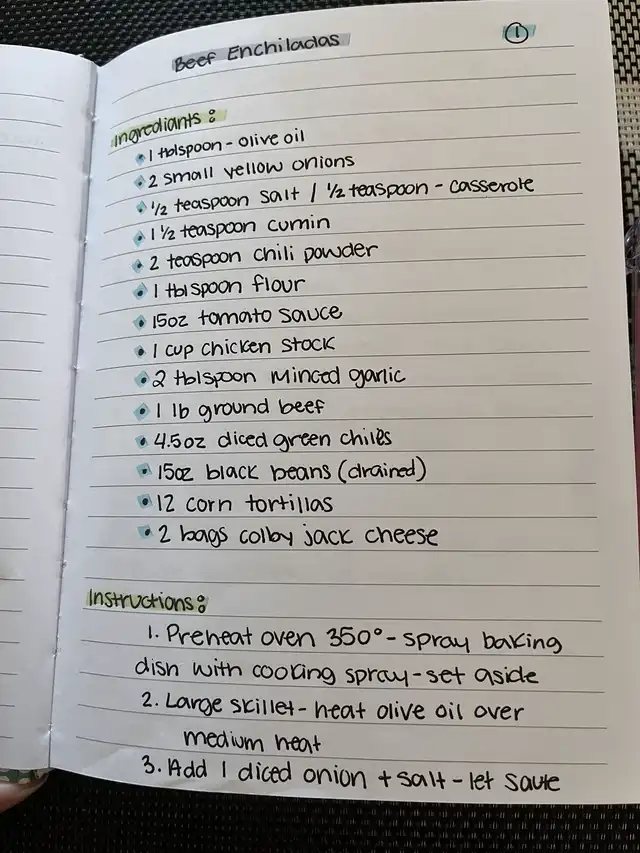 Beef Enchiladas
1
Ingrediants:
1 tblspoon - olive oil
2 small yellow onions
1/2 teaspoon salt / 1/2 teaspoon - casserole
1 1/2 teaspoon cumin
2 teaspoon chili powder
1 tblspoon flour
15oz tomato sauce
1 cup chicken stock
2 tblspoon minced garlic
1 lb ground beef
4.5oz diced green chiles
15oz black beans (drained)
12 corn tortillas
2 bags colby jack cheese
Instructions:
1. Preheat oven 350° - spray baking
dish with cooking spray - set aside
2. Large skillet - heat olive oil over
medium heat
3. Add 1 diced onion + salt - let saute